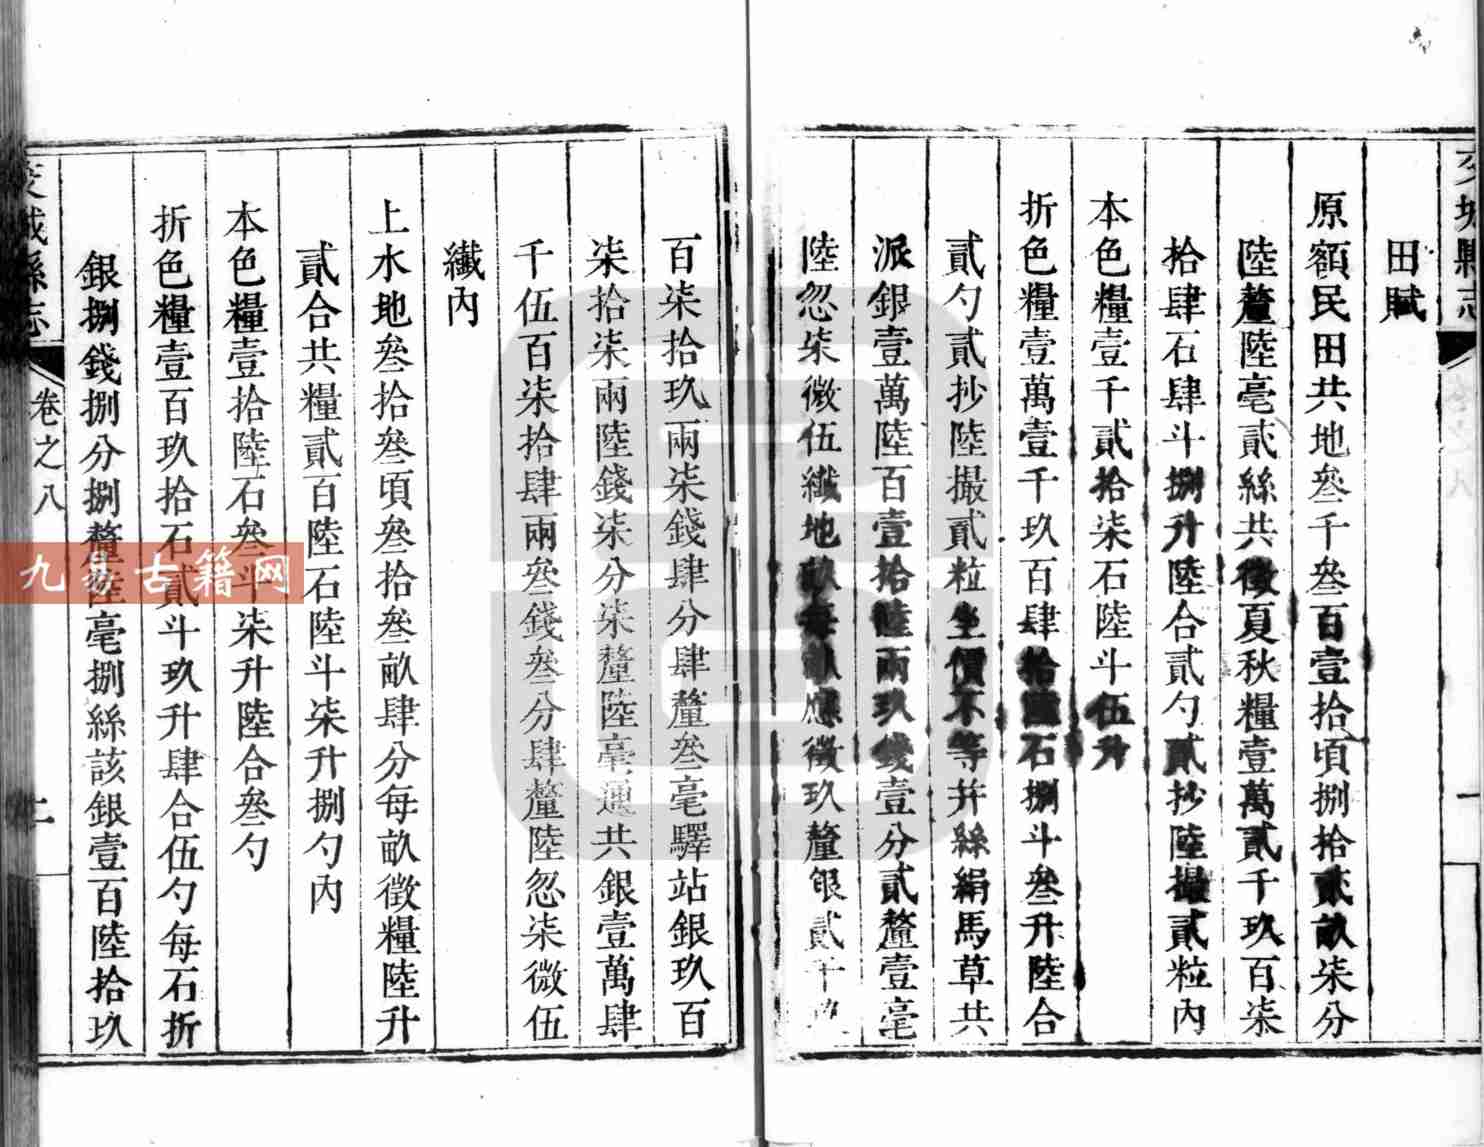 交城縣志
田賦
原額民田共地叄千叄百壹拾頃捌拾貳畝柒分
陸釐陸毫貳絲共徵夏秋糧壹萬貳千玖百柒
拾肆石肆斗捌升陸合貳勺貳抄陸撮貳粒內
本色糧壹千貳拾柒石陸斗伍升
折色糧壹萬壹千玖百肆拾陸石捌斗叄升陸合
貳勺貳抄陸撮貳粒坐價不等幷絲絹馬草共
派銀壹萬陸百壹拾陸兩玖錢壹分貳釐壹毫
陸忽柒微伍纖地畝每畝應徵玖釐銀貳千玖
百柒拾玖兩柒錢肆分肆釐叄毫驛站銀玖百
柒拾柒兩陸錢柒分柒釐陸毫通共銀壹萬肆
千伍百柒拾肆兩叄錢叄分肆釐陸忽柒微伍
纖內
上水地叄拾叄頃叄拾叄畝肆分每畝徵糧陸升
貳合共糧貳百陸石陸斗柒升捌勺內
本色糧壹拾陸石叄斗柒升陸合叄勺
折色糧壹百玖拾石貳斗玖升肆合伍勺每石折
銀捌錢捌分捌釐陸毫捌絲該銀壹百陸拾玖
交城縣志
卷之八
二
九易古籍网